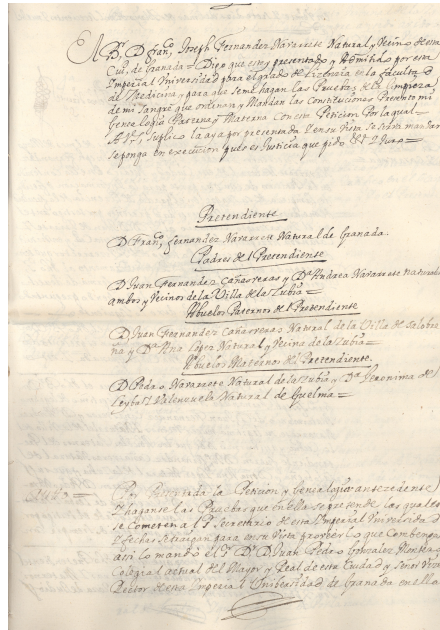 El Br. D. Franco. Joseph Fernandez Navarrete Natural y Vecino de esta
Ciud. de Granada = Digo que estoy presentado y Admitido por esta
Imperial Universidad para el grado de Lizencia en la facultad
de Medicina, y para que seme hagan las Pruebas de la limpieza
de mi Sangre que ordenan y Mandan las Constituciones Presento mi
Genealogia Paterna y Materna con esta Peticion Por la qual =
A V.S. suplico la aya por presentada y en su Vista se sirva mandar
se ponga en execucion que es Justicia que pido
Pretendiente
D. Franco. Fernandez Navarrete Natural de Granada.
Padres del Pretendiente
D. Juan Fernandez Cañasveras y Da. Andrea Navarrete naturales
ambos y Vecinos de la Villa de la Zubia =
Abuelos Paternos del Pretendiente
D. Juan Fernandez Cañasveras Natural de la Villa de Salobre
na y Da. Ana Lopez Natural y Vecina de la Zubia =
Abuelos Maternos del Pretendiente.
D. Pedro Navarrete Natural de la Zubia y Da. Geronima de
Leyba y Valenzuela Natural de Guelma =
Auto =
Por Presentada la Peticion y Genealogia antezedente
y haganse las Pruebas que en ella se pretende las quales
se cometen al Secretario de esta Imperial Universidad
y fechas se traigan para en su Vista proveer lo que Combenga
assi lo mando el Sr. Dr. D. Juan Pedro Gonzalez
Colegial actual del Mayor y Real de esta Ciudad y Señor
Rector de esta Imperial Unibersidad de Granada en ella